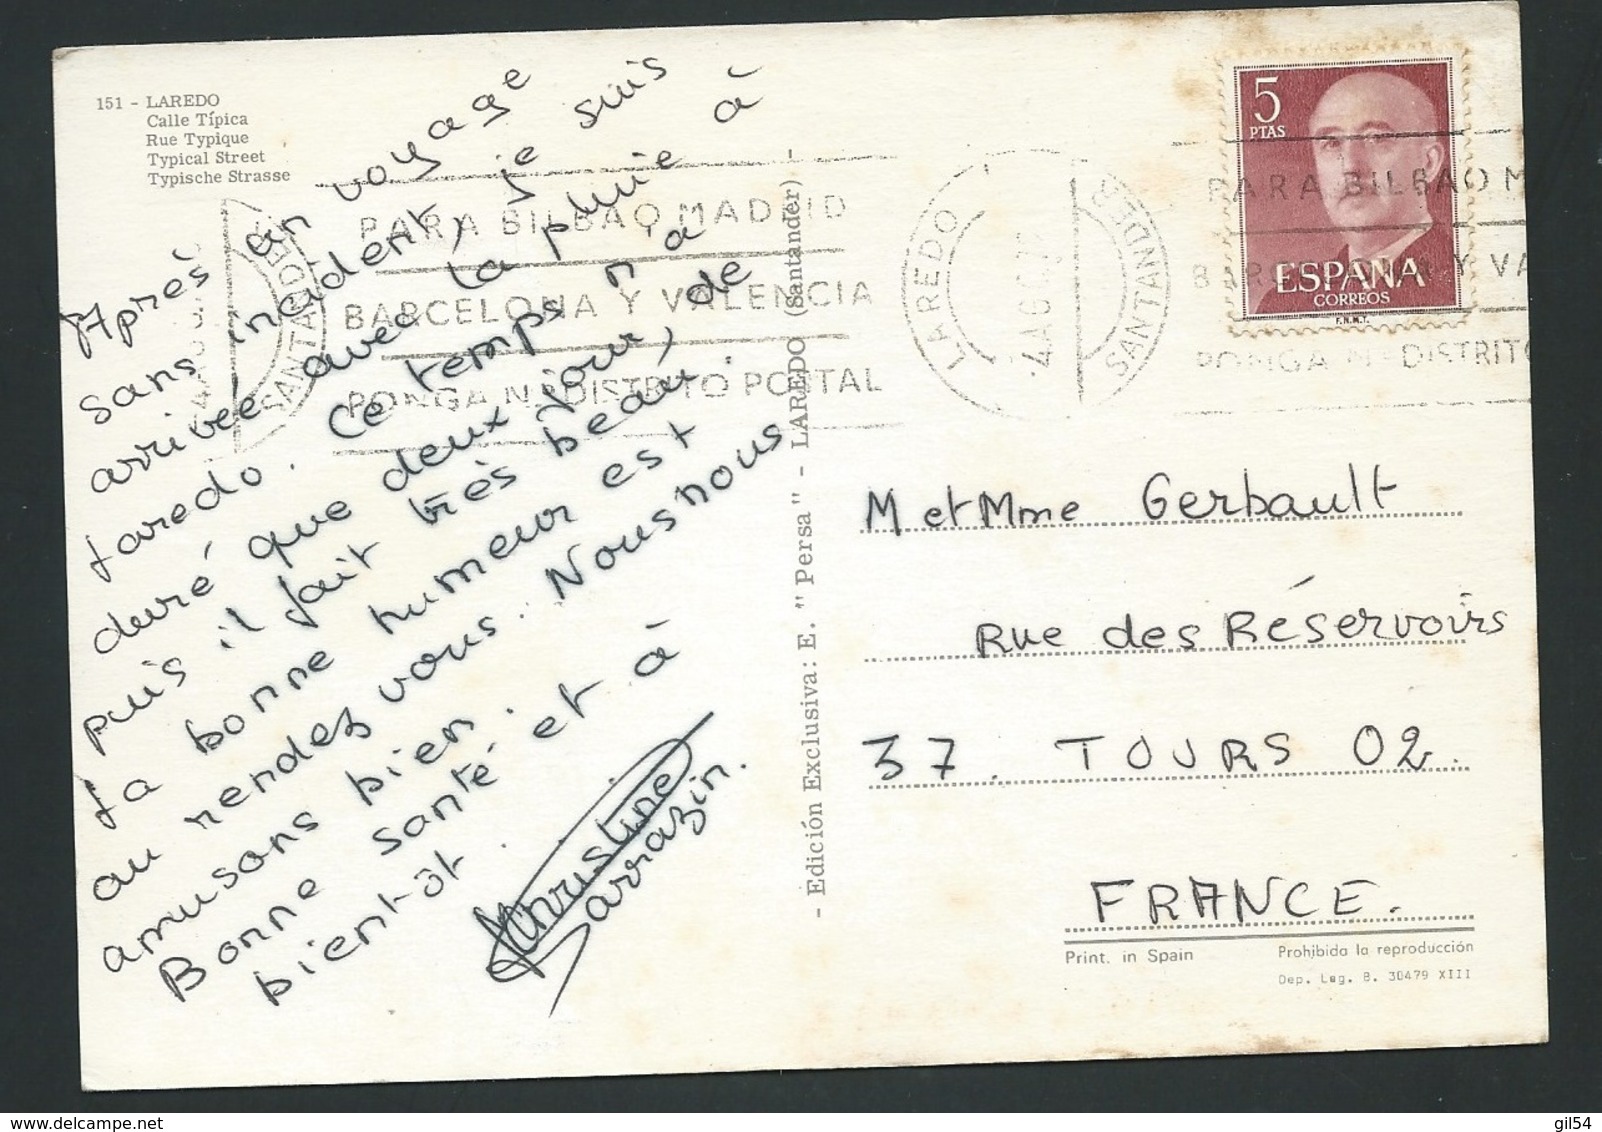 151 - LAREDO
Calle Típica
Rue Typique
Typical Street
Typische Strasse
Après un voyage
sans incident, je suis
arrivée avec la pluie à
Laredo. Ce temps n'a
duré que deux jour, de
puis il fait très beau.
La bonne humeur est
au rendez vous. Nous nous
amusons bien.
Bonne santé et à
bientôt.
Christine
Sarrazin.
- Edición Exclusiva: E. "Persa" - LAREDO (Santander) -
LAREDO
SANTANDER
PARA BILBAO, MADRID
BARCELONA Y VALENCIA
PONGA Nº DISTRITO POSTAL
LAREDO
SANTANDER
PARA BILBAO, M
BARCELONA Y VA
PONGA Nº DISTRITO
5
PTAS
ESPAÑA
CORREOS
F.N.M.T.
M et Mme Gerbault
Rue des Réservoirs
37. TOURS 02.
FRANCE.
Print. in Spain
Prohibida la reproducción
Dep. Leg. B. 30479 XIII
delcampe.net
gil54